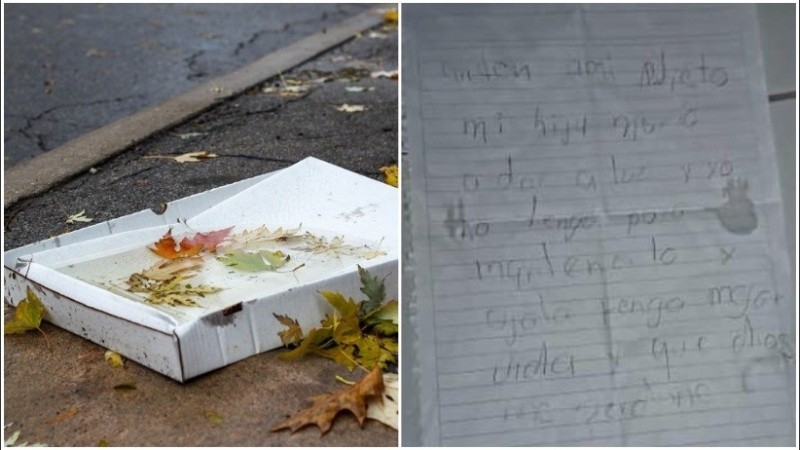 cuiden ami Nieto
mi hija murio
a dar a luz y yo
no tengo para
mantenerlo y
ojala tenga mejor
vida y que dios
me perdone